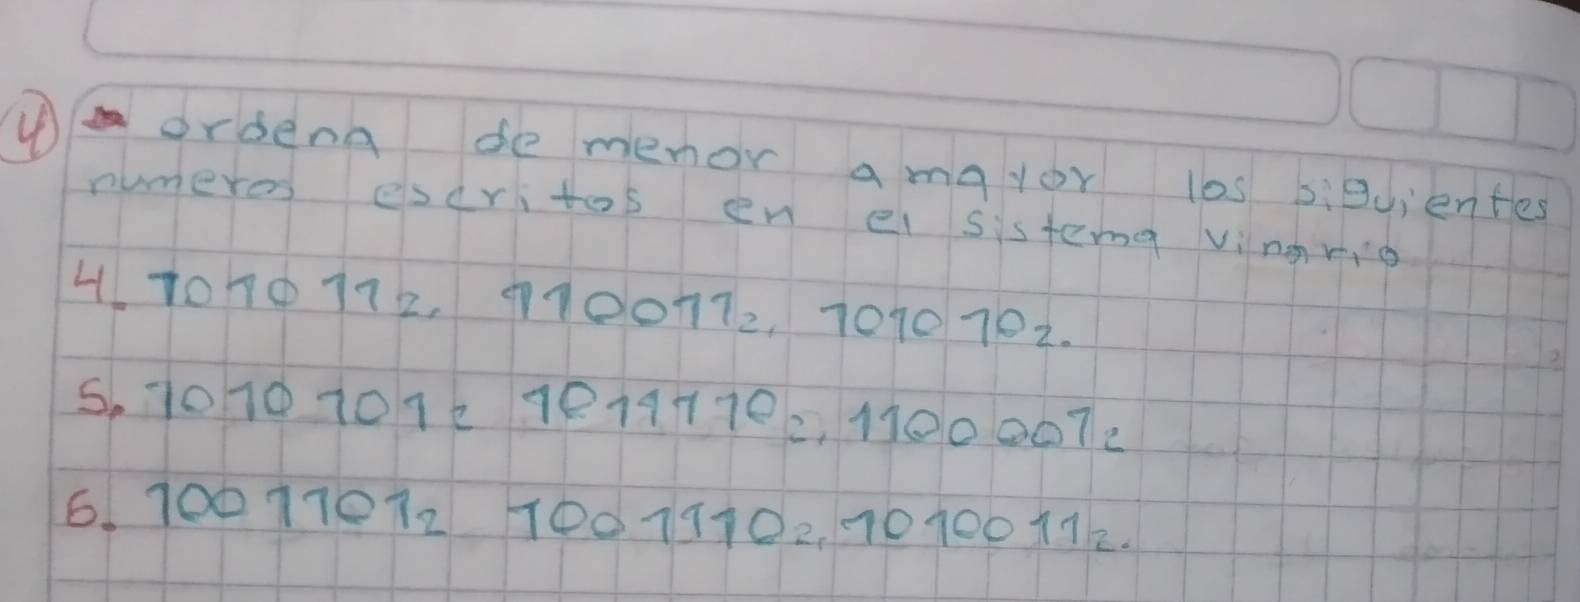 4 ordena de menor a mayor los siguientes
numeros escritos en el sistema vinario
4. 101011₂, 110011₂, 101010₂.
5. 1010101₂ 1011110₂, 1100001₂
6. 1001101₂ 1001110₂, 1010011₂.